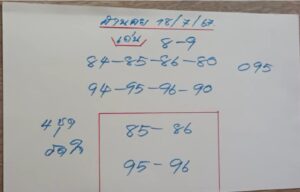 18/7/67
เด่น 8-9
84-85-86-80
095
94-95-96-90
4 ชุด
85-86
95-96